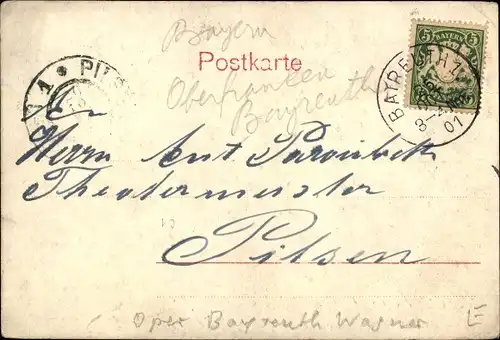 Bayern
Postkarte
Oberfranken
Bayreuth
5 BAYERN 5
BAYREUTH 1
8-
01
1 * PIL
An
Herrn Ant
Theatermeister
Pilsen
Oper Bayreuth Wagner
E